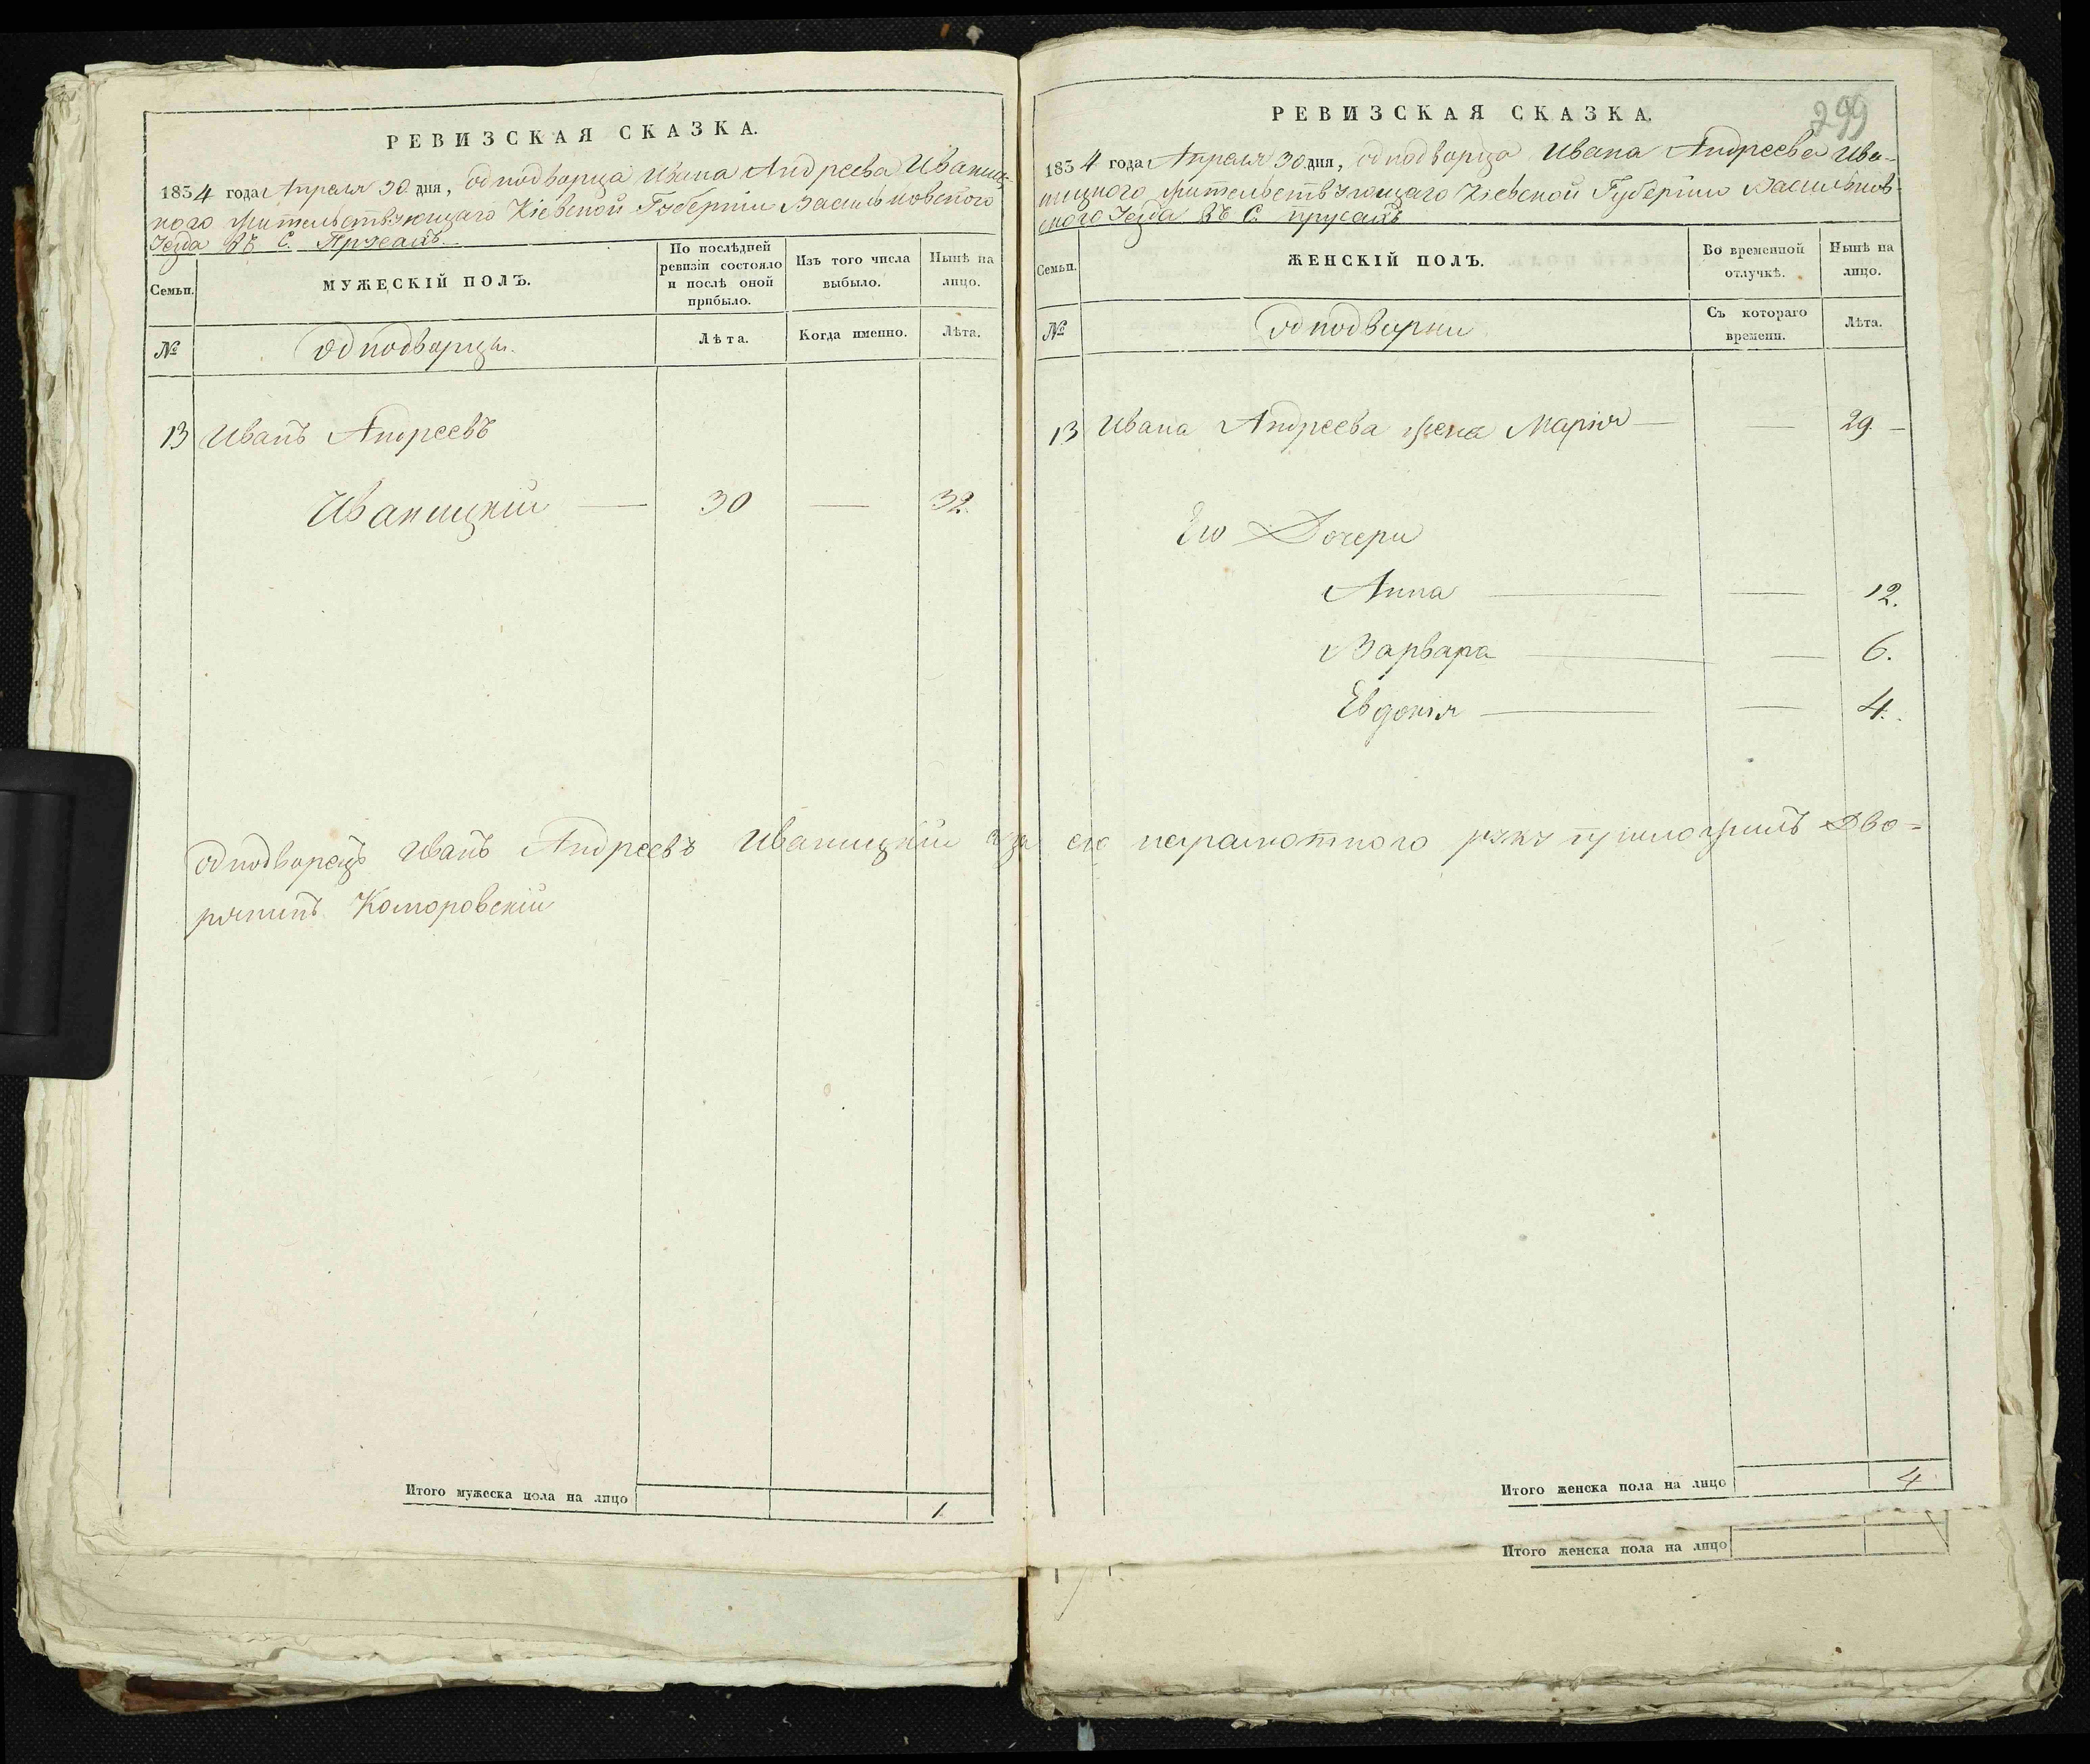 РЕВИЗСКАЯ СКАЗКА.
1834 года Апреля 30 дня, однодворца Ивана Андреева Иваниц-
кого жительствующаго Кіевской Губерніи Васильковского
Уезда въ С. Прусахъ
Семьи.
МУЖЕСКІЙ ПОЛЪ.
По послѣдней
ревизіи состояло
и послѣ оной
прибыло.
Изъ того числа
выбыло.
Нынѣ на
лицо.
№
Однодворцы.
Лѣта.
Когда именно.
Лѣта.
13 Иванъ Андреевъ
Иваницкій — 30 — 32.
Итого мужеска пола на лицо 1.
299
РЕВИЗСКАЯ СКАЗКА.
1834 года Апреля 30 дня, однодворца Ивана Андреева Ива-
ницкого жительствующаго Кіевской Губерніи Васильков-
ского Уезда въ С. прусахъ
Семьи.
ЖЕНСКІЙ ПОЛЪ.
Во временной
отлучкѣ.
Нынѣ на
лицо.
№
Однодворки
Съ котораго
времени.
Лѣта.
13 Ивана Андреева жена Марія — — 29 —
Его Дочери
Анна — — 12.
Варвара — — 6.
Евдокія — — 4.
Однодворецъ Иванъ Андреевъ Иваницкій а за его неграмотного руку приложилъ Дво=
рянинъ Коморовскій
Итого женска пола на лицо 4.
Итого женска пола на лицо